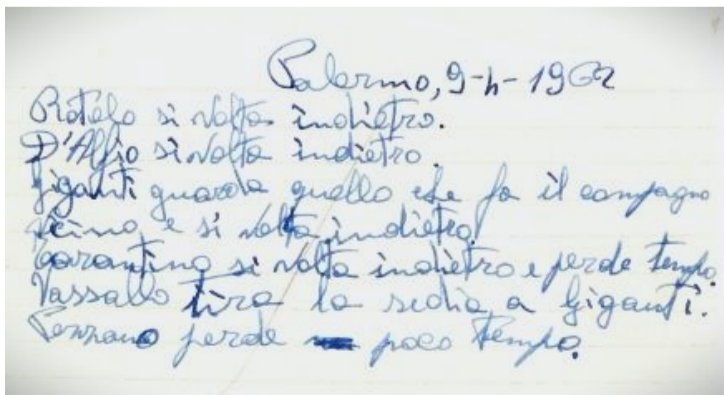 Palermo, 9-4-1962
Rotolo si volta indietro.
D'Alfio si volta indietro.
Giganti guarda quello che fa il compagno
vicino e si volta indietro.
Tarantino si volta indietro e perde tempo.
Vassallo tira la sedia a Giganti.
perde poco tempo.